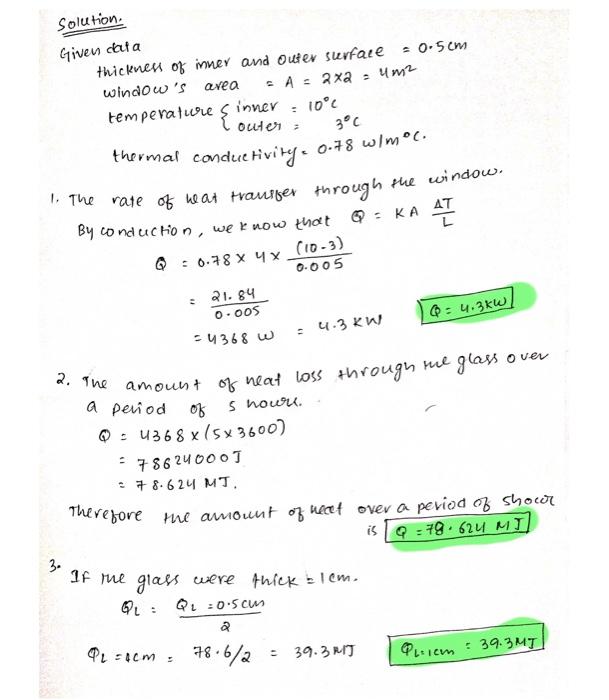 Solution.
Given data
thickness of inner and outer surface = 0.5cm
window's area = A = 2x2 = 4m²
temperature { inner = 10°c
outer = 3°c
thermal conductivity = 0.78 w/m°c.
1. The rate of heat transfer through the window.
By conduction, we know that Q = KA ΔT/L
Q = 0.78 x 4 x (10-3)/0.005
= 21.84/0.005
= 4368 w = 4.3 KW
Q = 4.3KW
2. The amount of heat loss through the glass over
a period of 5 hours.
Q = 4368 x (5x3600)
= 78624000J
= 78.624 MJ.
Therefore the amount of heat over a period of 5hour
is Q = 78.624 MJ
3.
If the glass were thick = 1cm.
QL = QL = 0.5cm/2
QL = 1cm = 78.6/2 = 39.3MJ
QL=1cm = 39.3MJ